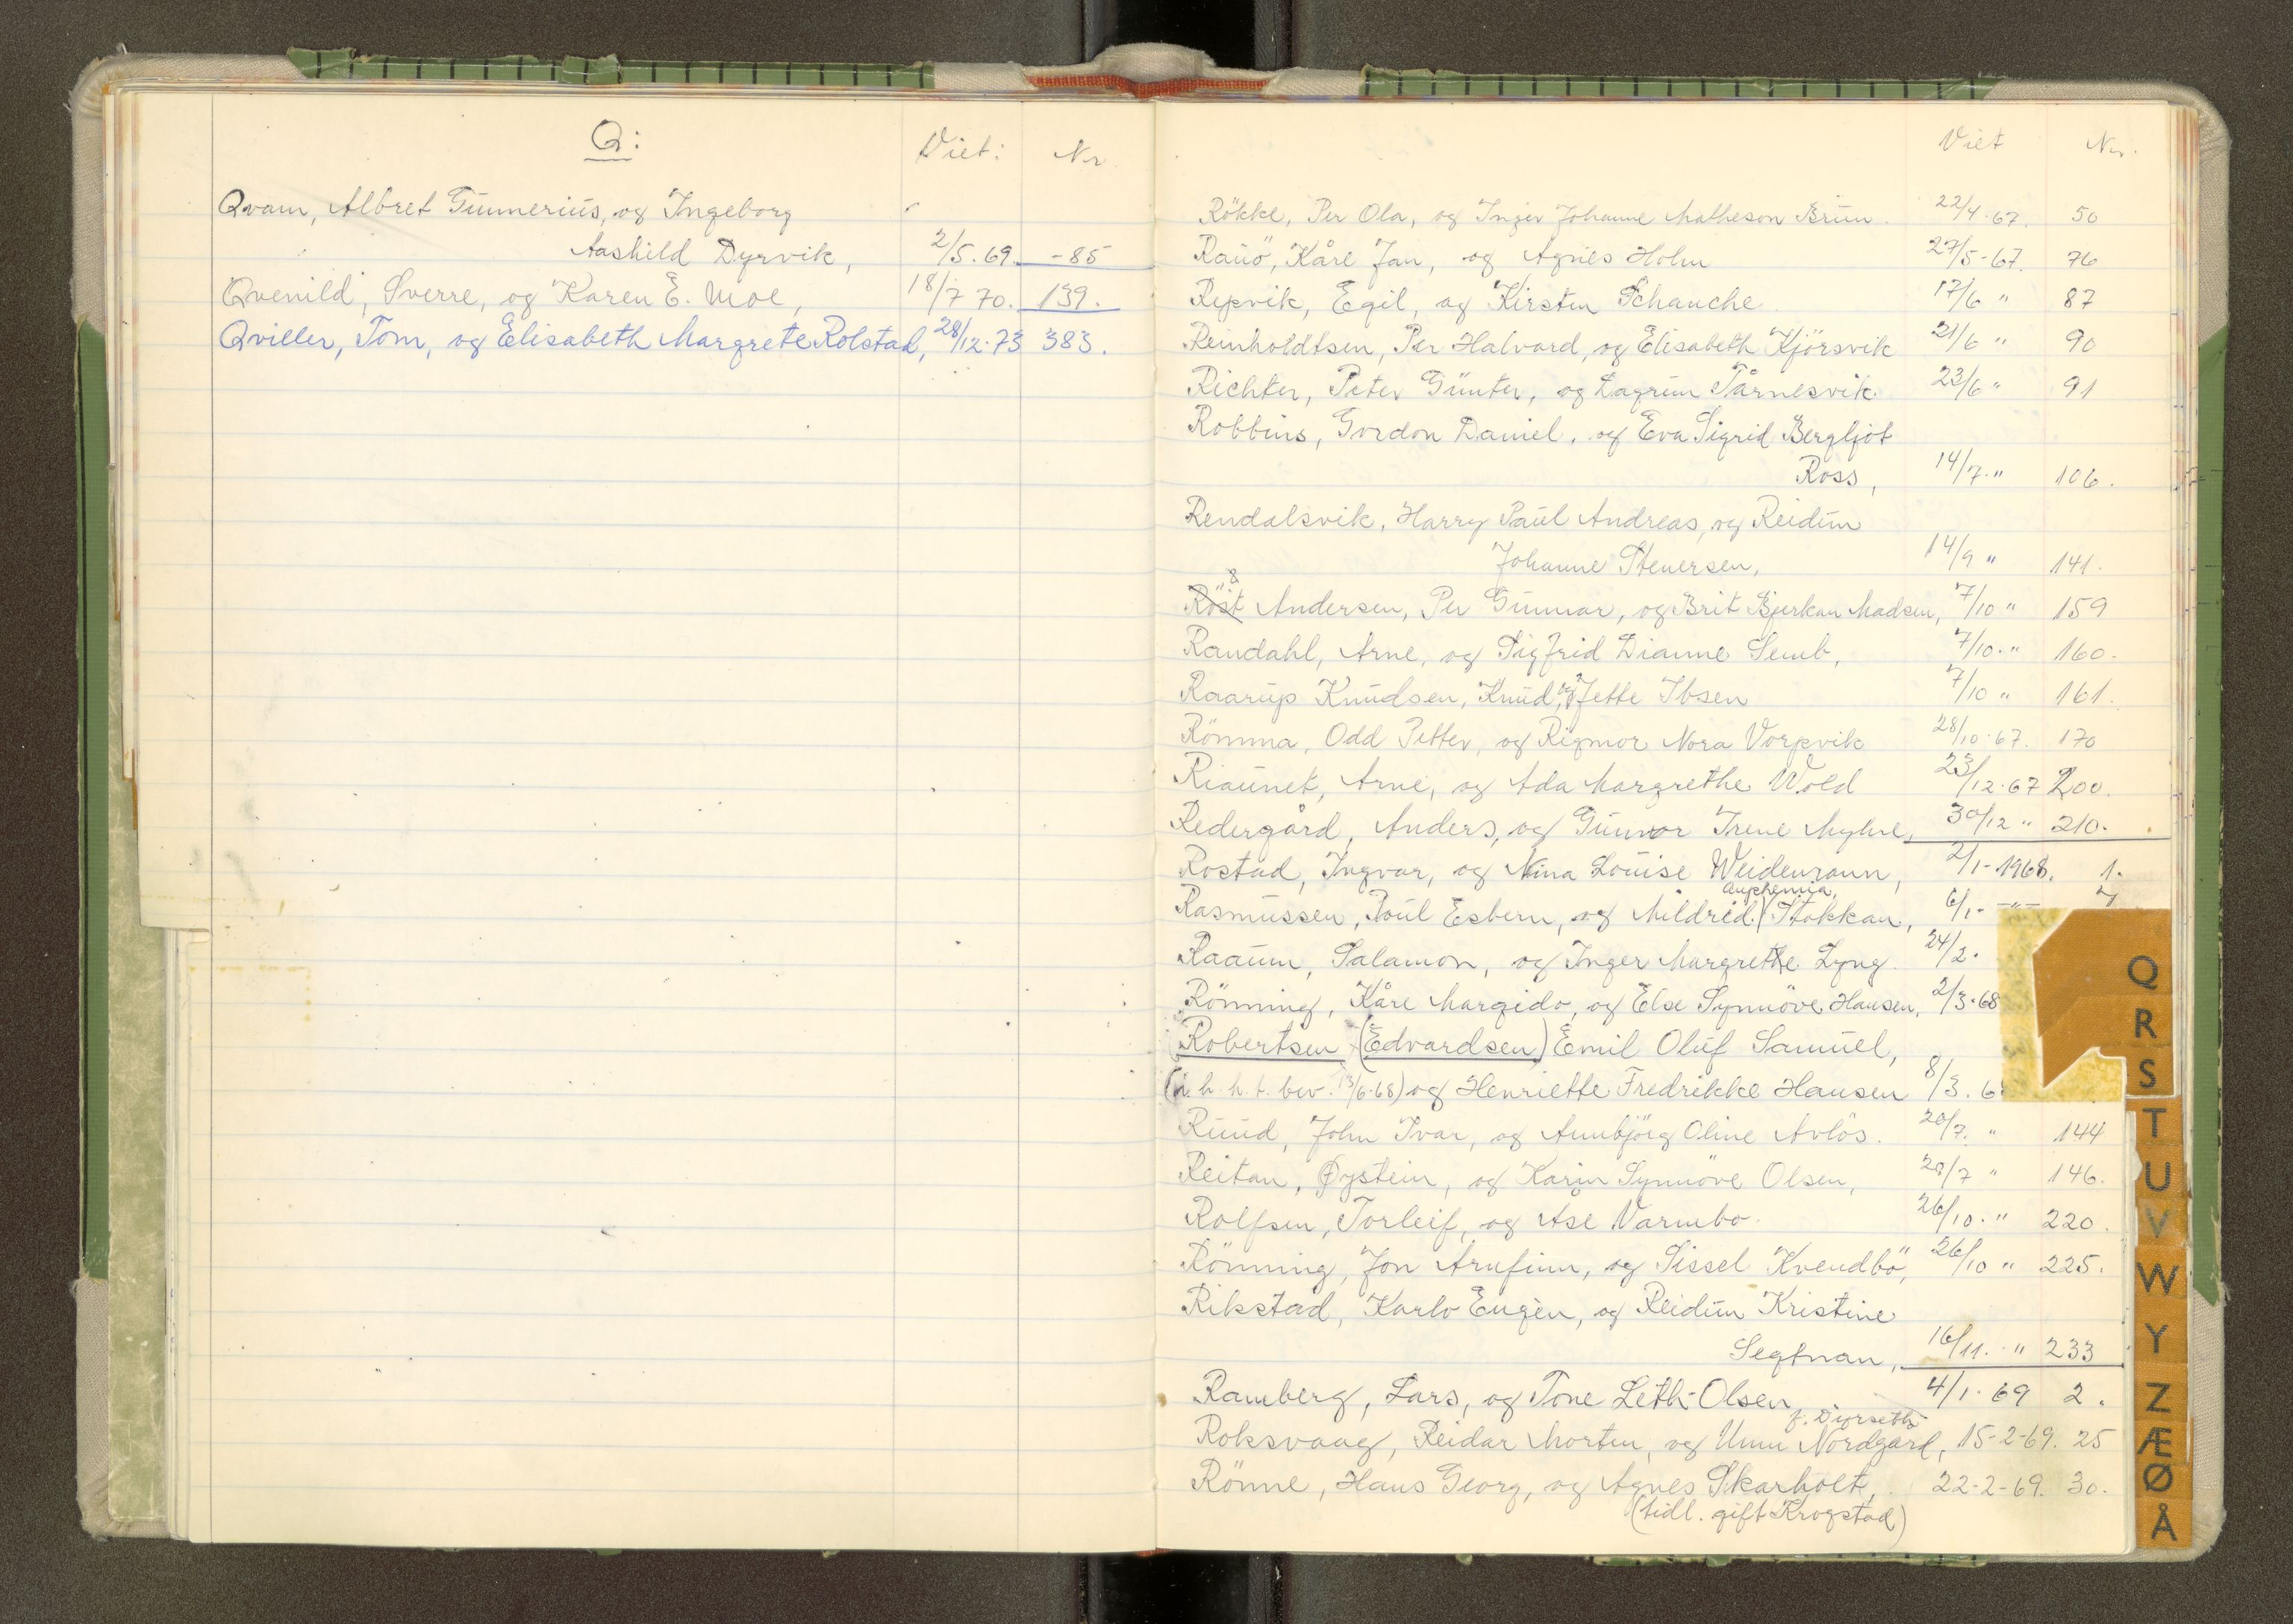 Q: Viet: Nr
Qvam, Albret Gunnerius, og Ingeborg
Aashild Dyrvik, 2/5.69. -85
Qvenild, Sverre, og Karen E. Moe, 18/7 70. 139.
Qviller, Tom, og Elisabeth Margrete Rolstad, 28/12.73 383.
Viet Nr.
Rökke, Per Ola, og Inger Johanne Matheson Brun. 22/4.67. 50
Rauö, Kåre Jan, og Agnes Holm 27/5-67. 76
Repvik, Egil, og Kirsten Schanche 17/6 " 87
Reinholdtsen, Per Halvard, og Elisabeth Kjörsvik 21/6 " 90
Richter, Peter Günter, og Dagrun Tårnesvik. 23/6 " 91
Robbins, Gordon Daniel, og Eva Sigrid Bergljot
Ross, 14/7." 106.
Rendalsvik, Harry Paul Andreas, og Reidun
Johanne Stenersen, 14/9 " 141.
Röst Andersen, Per Gunnar, og Brit Bjerkan Madsen, 7/10 " 159
Randahl, Arne, og Sigfrid Dianne Semb, 7/10." 160.
Raarup Knudsen, Knud, og Jette Ibsen 7/10 " 161.
Römma, Odd Petter, og Rigmor Nora Vorpvik 28/10.67. 170
Riaunet, Arne, og Ada Margrethe Wold 23/12.67 200.
Redergård, Anders, og Gunvor Irene Myhre, 30/12 " 210.
Rostad, Ingvar, og Nina Louise Weidemann, 2/1-1968. 1.
Auphemia,
Rasmussen, Poul Esbern, og Mildrid Stokkan, 6/1- -"- 7
Raaum, Salamon, og Inger Margrethe Lyng. 24/2.
Rönning, Kåre Margido, og Else Synnöve Hansen, 2/3.68
Robertsen (Edvardsen) Emil Oluf Samuel,
(n. h. h. t. bev. 13/6-68) og Henriette Fredrikke Hansen 8/3. 6
Ruud, John Ivar, og Annbjörg Oline Avlös. 20/7. " 144
Reitan, Øystein, og Karin Synnöve Olsen, 20/7 " 146.
Rolfsen, Torleif, og Åse Varmbo. 26/10." 220.
Rönning, Jon Arnfinn, og Sissel Kvendbö, 26/10 " 225.
Rikstad, Karlo Eugèn, og Reidun Kristine
Segtnan, 16/11. " 233
Ramberg, Lars, og Tone Leth-Olsen 4/1.69 2.
f. Dyrseth
Roksvaag, Reidar Morten, og Unni Nordgård, 15-2-69. 25
Rönne, Hans Georg, og Agnes Skarholt, 22-2-69. 30.
(tidl. gift Krogstad)
Q
R
S
T
U
V
W
Y
Z
Æ
Ø
Å